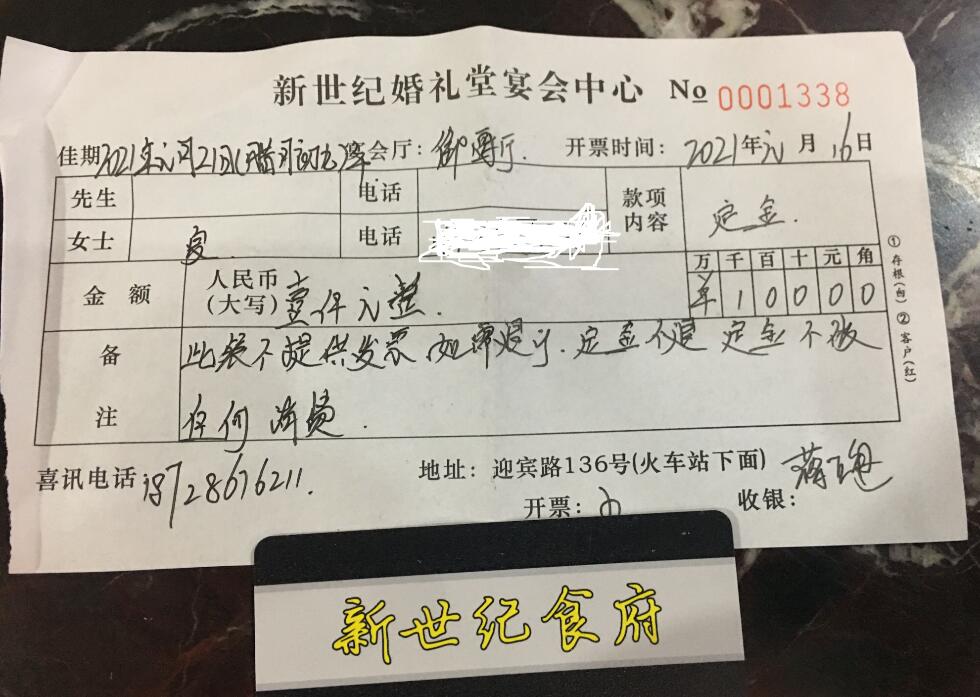 新世纪婚礼堂宴会中心 No 0001338
佳期 2021年元月21日(腊月初九) 宴会厅: 御尊厅. 开票时间: 2021年元月16日
先生 电话 款项内容 定金.
女士 电话
万 千 百 十 元 角
金额 人民币(大写) 壹仟元整. ¥ 1 0 0 0 0
备注 此餐不提供发票 如需退订. 定金不退 定金不做
任何消费.
①存根(白) ②客户(红)
喜讯电话: 18728676211. 地址: 迎宾路136号(火车站下面)
开票: 收银:
新世纪食府